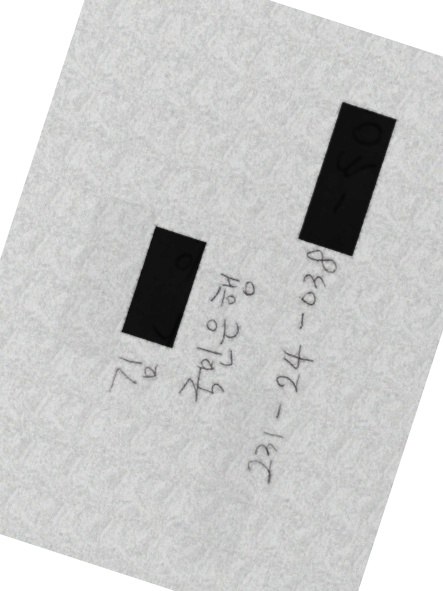 김
국민은행
231-24-038